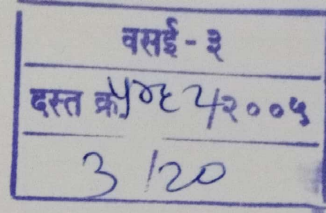 वसई - ३
दस्त क्र५०६५/२००५
3/20